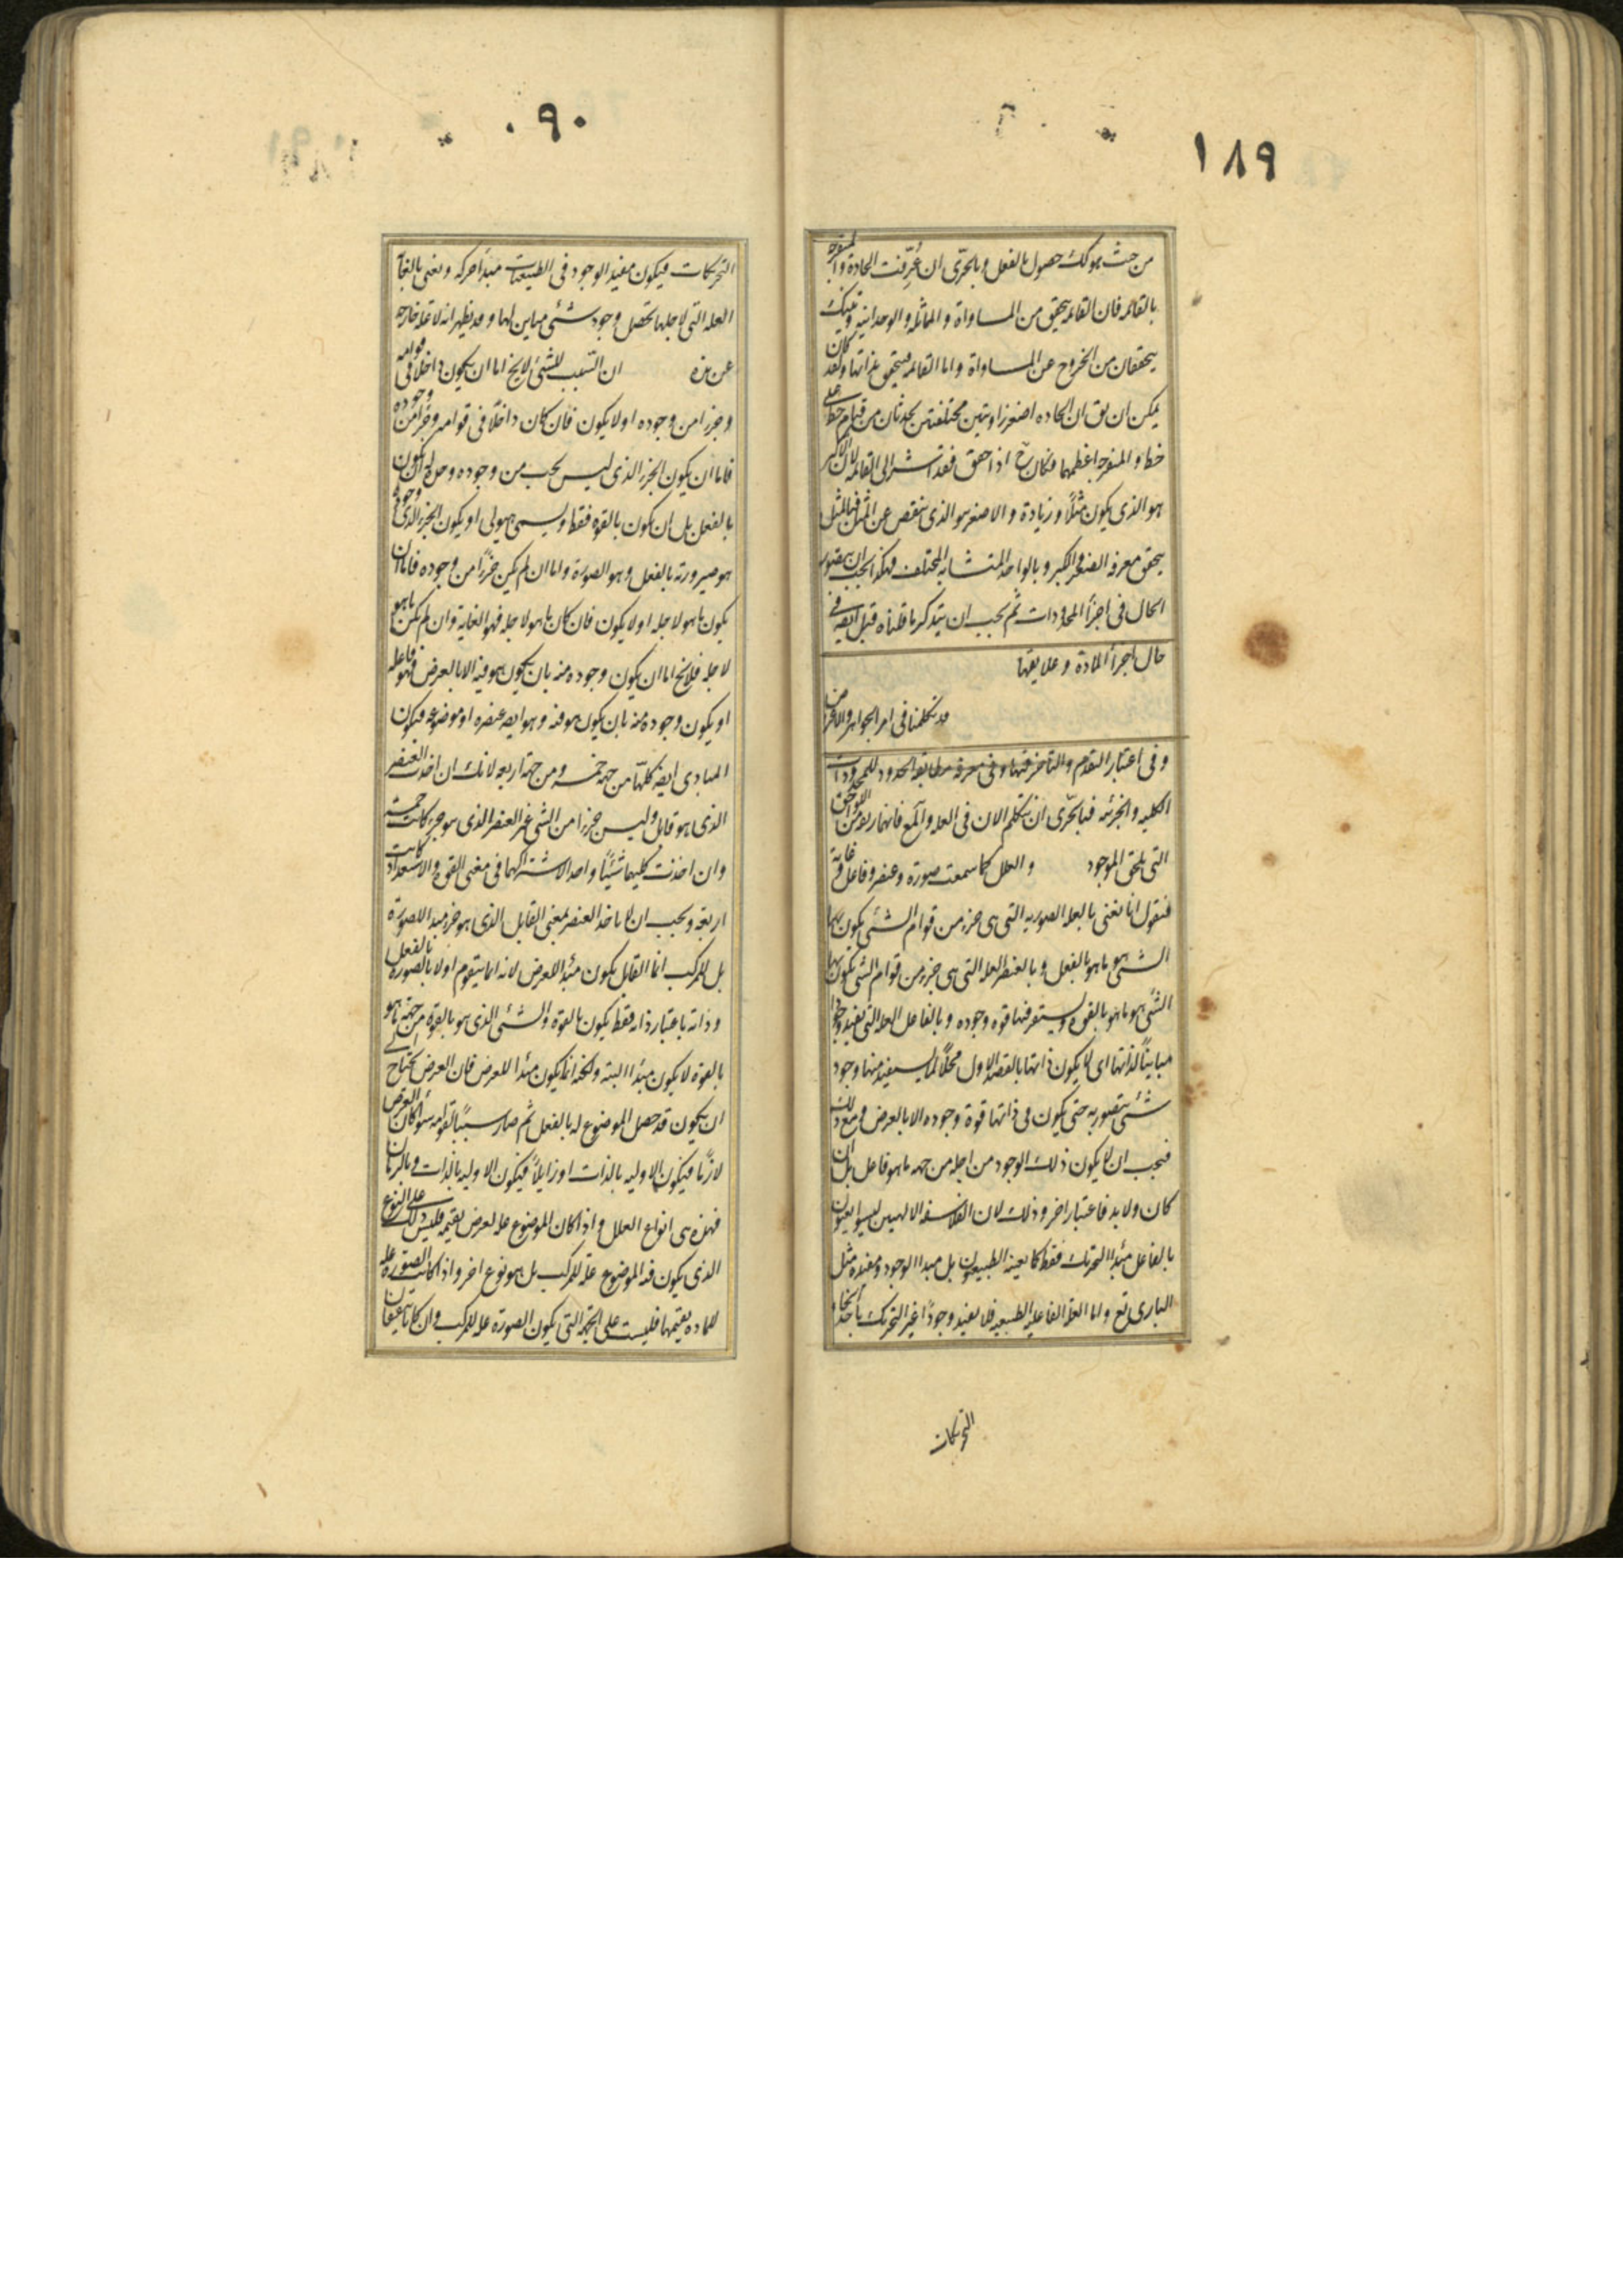 ١٨٩
من حيث هو كك حصول بالفعل وبالحرى ان عُرِّفت الحادة والمنفرجة
بالقائمه فان القائمه يتحقق من المساواة والمماثله والوحدانيه وتينك
يتحققان من الخروج عن المساواة واما القائمه فيتحقق بذاتها ولقد كان
يمكن ان يق ان الحاده اصغر زاويتين مختلفتين يحدثان من قيام خط على
خط والمنفرجه اعظمهما وكان ح اذا حقق فقد اشير الى القائمه لان الاكبر
هو الذى يكون مثلاً وزيادة والاصغر هو الذى ينقص عن المثل فبالمثل
يتحقق معرفه الصغر والكبر وبالواحد المتشابه المختلف فهكذا يجب ان يتصور
الحال فى اجزاء المحدودات ثم يجب ان يتذكر ما قلناه قبل ايضه فى
حال اجزاء المادة وعلايقها
قد تكلمنا فى امر الجواهر والاعراض
وفى اعتبار التقدم والتاخر فيها وفى معرفه مطابقه الحدود للمحدودات
الكليه والجزئيه فبالحرّى ان نتكلم الان فى العله والمع فانهما ايضا من اللواحق
التى يلحق الموجود والعلل كما سمعت صوره وعنصر وفاعل وغاية
فنقول انا نعنى بالعله الصوريه التى هى جزء من قوام الشئ يكون بها
الشئ هو ما هو بالفعل وبالعنصر العله التى هى جزء من قوام الشئ يكون بها
الشئ هو ما هو بالقوه ويستقر فيها قوه وجوده وبالفاعل العله التى يفيد وجودا
مبايناً لذاتها اى لا يكون ذاتها بالقصد الاول محلّاً لما يستفيد منها وجود
شئ يتصور به حتى يكون فى ذاتها قوة وجوده الا بالعرض ومع ذلك
فيجب ان لا يكون ذلك الوجود من اجله من جهه ما هو فاعل بل ان
كان ولا بد فاعتبار اخر وذلك لان الفلاسفه الالهيين ليسوا يعنون
بالفاعل مبدا التحريك فقط كما يعينه الطبيعيون بل مبدا الوجود ومفيده مثل
البارى تع واما العله الفاعليه الطبيعيه فلا يفيد وجوداً غير التحريك باحد انحاء
التحريكات
٩٠
التحريكات فيكون مفيد الوجود فى الطبيعيات مبدا حركه ونعنى بالغاية
العله التى لاجلها تحصل وجود شئ مباين لها وقد يظهر انه لا عله خارجه
عن هذه ان السبب للشئ لا يخ اما ان يكون داخلا فى قوامه
وجزءا من وجوده او لا يكون فان كان داخلًا فى قوامه وجزءا من وجوده
فاما ان يكون الجزء الذى ليس يجب من وجوده وحده له ان يكون
بالفعل بل ان يكون بالقوه فقط ويسمى هيولى او يكون الجزء الذى وجوده
هو صيرورته بالفعل وهو الصورة واما ان لم يكن جزءًا من وجوده فاما ان
يكون ما هو لاجله او لا يكون فان كان ما هو لاجله فهو الغاية وان لم يكن ما هو
لاجله فلا يخ اما ان يكون وجوده منه بان يكون هو فيه الا بالعرض فهو فاعله
او يكون وجوده منه بان يكون هو فيه وهو ايضه عنصره او موضوعه فيكون
المبادى ايضه كلها من جهه خمسه ومن جهة اربعه لانك ان اخذت العنصر
الذى هو قابل وليس جزءا من الشئ غير العنصر الذى هو جزء كانت خمسة
وان اخذت كليهما شئياً واحدا لاشتراكهما فى معنى القوة والاستعداد كانت
اربعة ويجب ان لا ياخذ العنصر بمعنى القابل الذى هو جزء مبدا للصورة
بل للمركب انما القابل يكون مبدا للعرض لانه انما يتقوم اولا بالصوره بالفعل
وذاته باعتبار ذاته فقط يكون بالقوه والشئ الذى هو بالقوة من جهه ما هو
بالقوه لا يكون مبدا البته ولكنه انما يكون مبدا للعرض فان العرض يحتاج الى
ان يكون قد حصل الموضوع له بالفعل ثم صار سبباً لقوامه سواء كان العرض
لازمًا فيكون الاوليه بالذات او زايلًا فيكون الاوليه بالذات وبالزمان
فهذه هى انواع العلل واذا كان الموضوع عله لعرض يقيمه فليس ذلك على النوع
الذى يكون فيه الموضوع علة للمركب بل هو نوع اخر واذا كانت الصورة عله
للماده يقيمها فليست على الجهه التى يكون الصورة عله للمركب وان كانا يتفقان